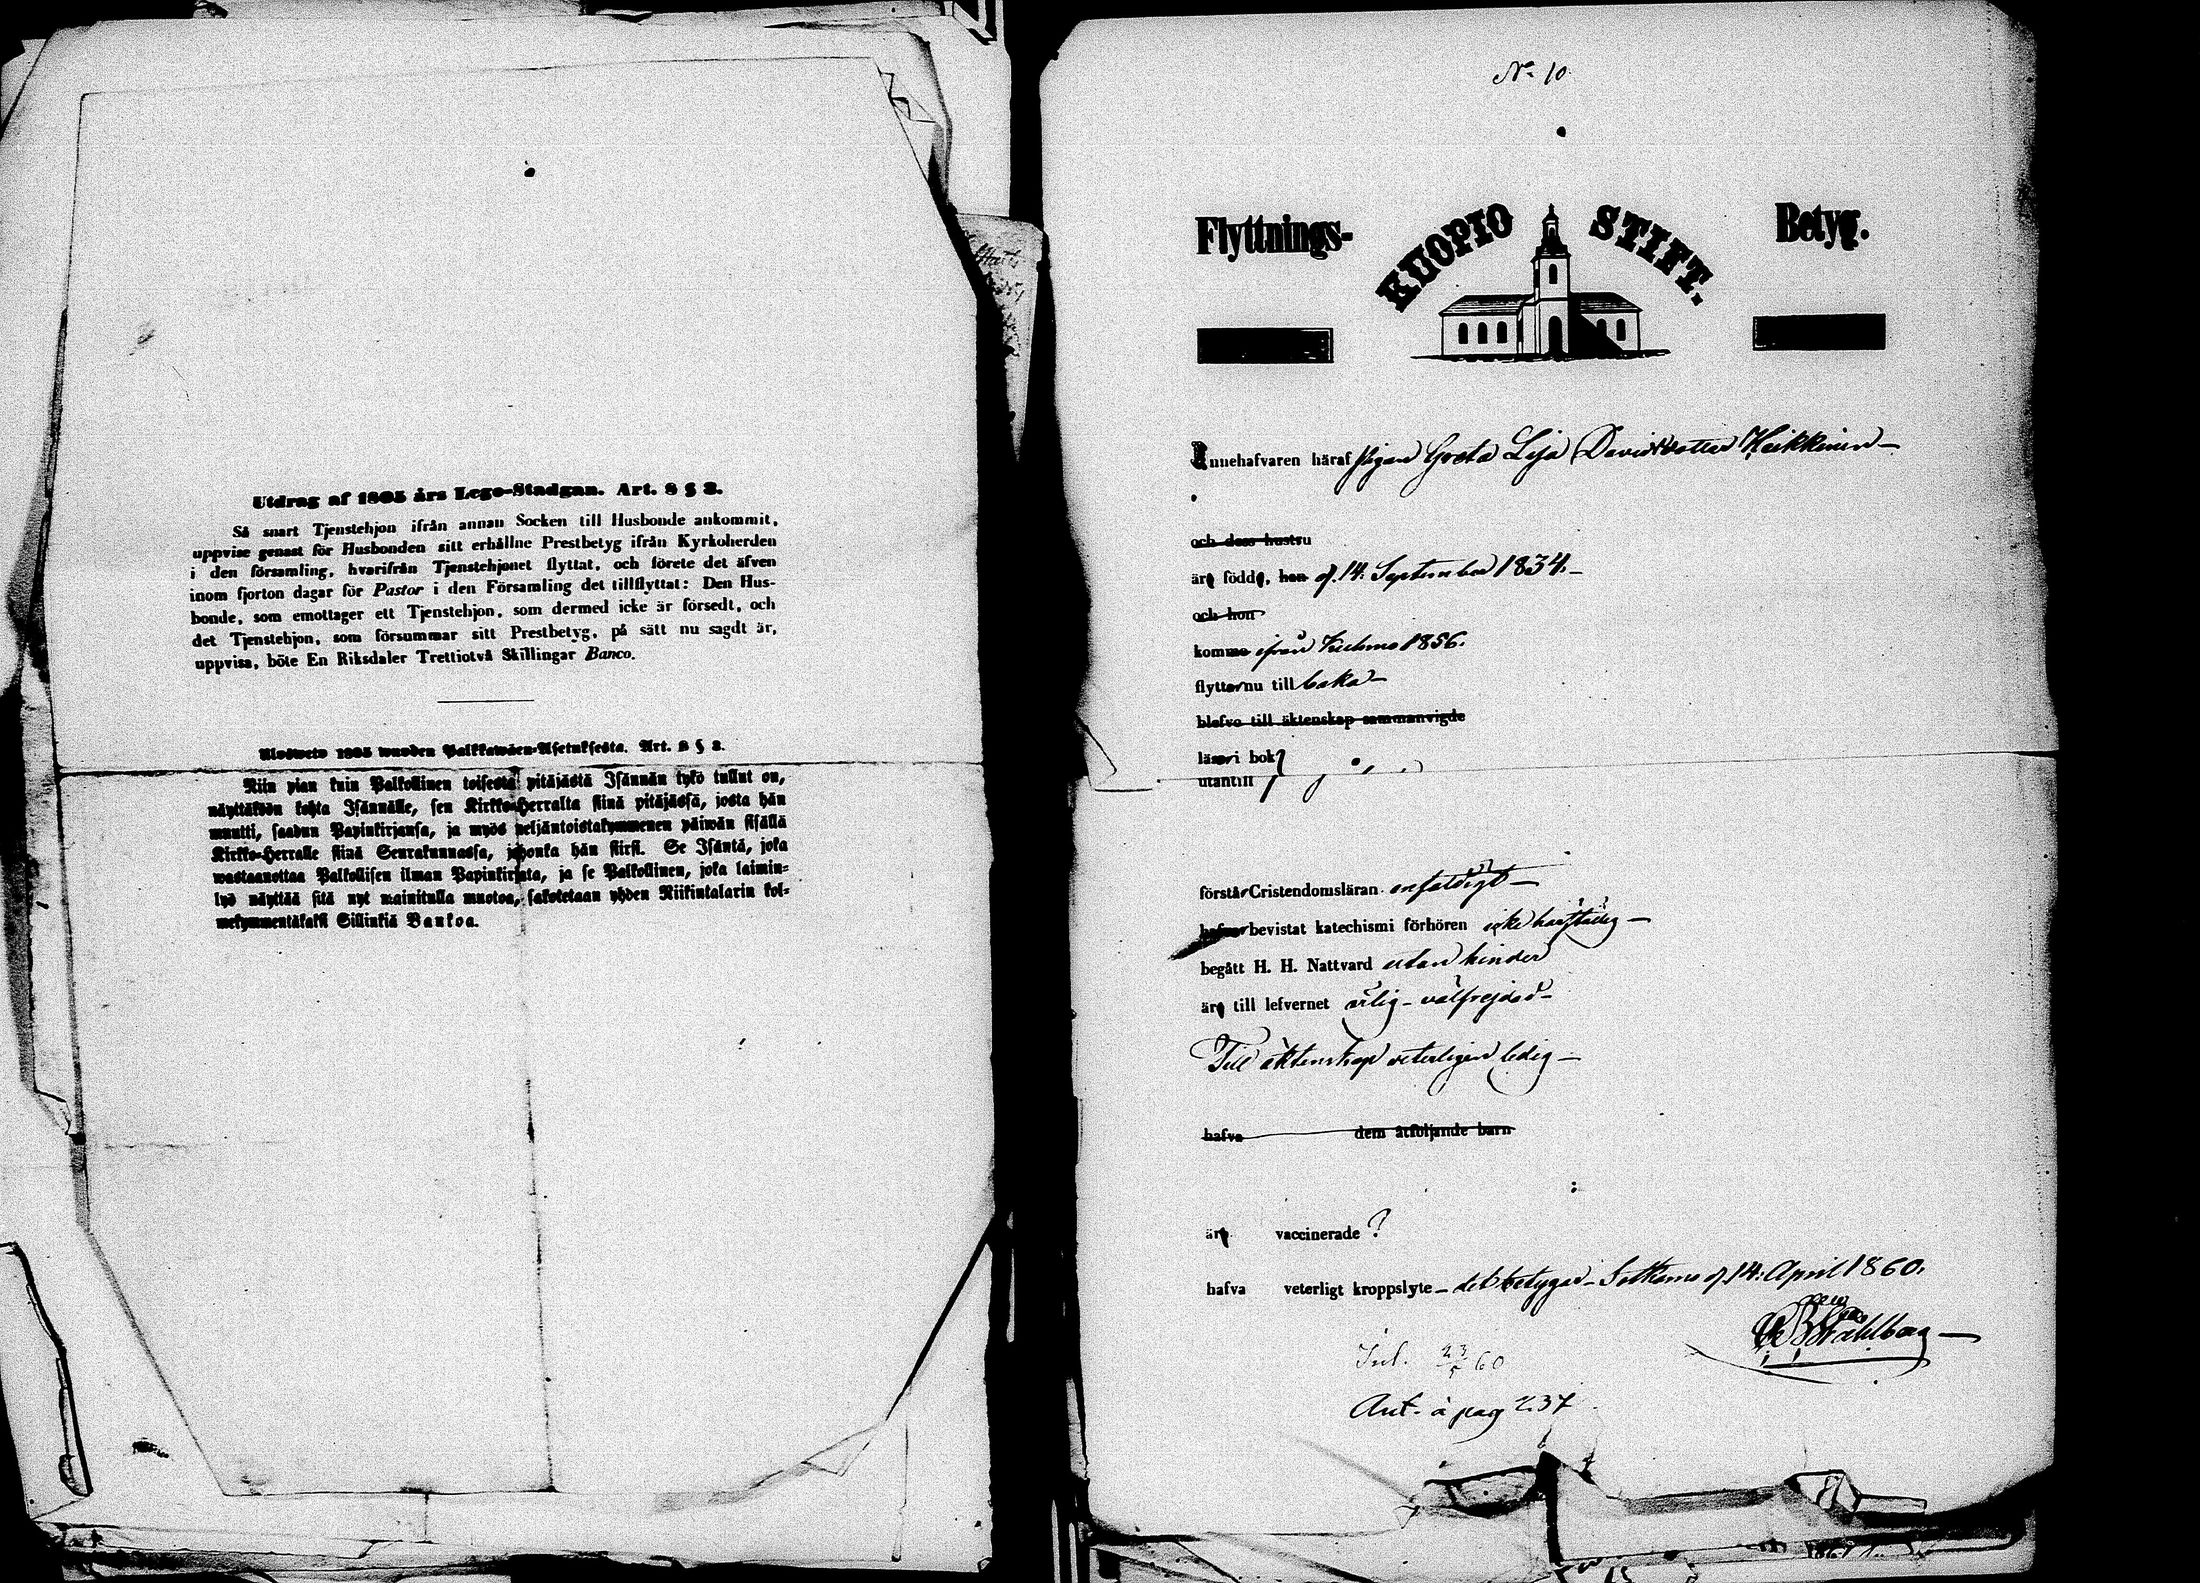 Utdrag af 1805 års Lego-Stadgan. Art. 8 § 3.
Så snart Tjenstehjon ifrån annan Socken till Husbonde ankommit,
uppvise genast för Husbonden sitt erhållne Prestbetyg ifrån Kyrkoherden
i den församling, hvarifrån Tjenstehjonet flyttat, och förete det äfven
inom fjorton dagar för Pastor i den Församling det tillflyttat: Den Hus-
bonde, som emottager ett Tjenstehjon, som dermed icke är försedt, och
det Tjenstehjon, som försummar sitt Prestbetyg, på sätt nu sagdt är,
uppvisa, böte En Riksdaler Trettiotvå Skillingar Banco.
Ulosweto 1805 wuoden Palkkawäen-Asetuksesta. Art. 8 § 3.
Niin pian kuin Palkollinen toisesta pitäjästä Isännän tykö tullut on,
näyttäköön kohta Isännälle, sen Kirkko-Herralta siinä pitäjässä, josta hän
muutti, saadun Papinkirjansa, ja myös neljäntoistakymmenen päiwän sisällä
Kirkko-Herralle siinä Seurakunnassa, johonka hän siirsi. Se Isäntä, joka
wastaanottaa Palkollisen ilman Papinkirjata, ja se Palkollinen, joka laimin-
lyö näyttää sitä nyt mainitulla muotoa, sakotetaan yhden Riikintalarin kol-
mekymmentäkaksi Sillinkiä Bankoa.
No 10.
Flyttnings- KUOPIO STIFT. Betyg.
Innehafvaren häraf pigan Greta Lisa Davidsdotter Heikkinen
och dess hustru
äro födde, han d. 14. September 1834.
och hon
komme ifrån Kuhmo 1856.
flytta nu till baka
blefvo till äktenskap sammanvigde
läsa i bok
utantill
förstår Cristendomsläran enfaldigt
hafva bevistat katechismi förhören icke härstädes
begått H. H. Nattvard utan hinder
äro till lefvernet ärlig - välfrejdad
Till äktenskap veterligen ledig
hafva dem åtföljande barn
äro vaccinerade ?
hafva veterligt kroppslyte - det betygar - Sotkamo d. 14. April 1860.
Stahlberg
Inl. 23/5 60
Ant. å pag 237